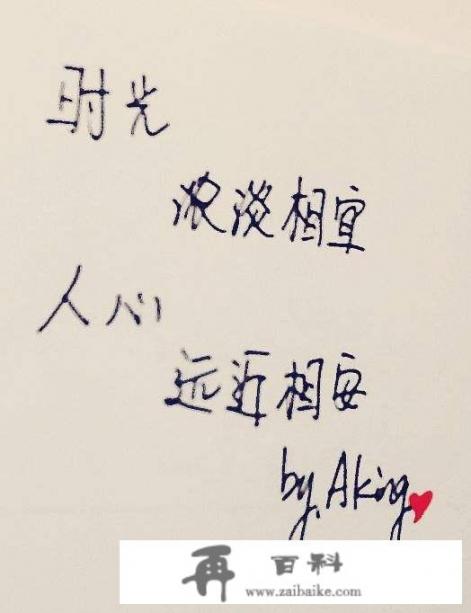 时光
浓淡相宜
人心
远近相安
by.Aking
再 百科
www.zaibaike.com